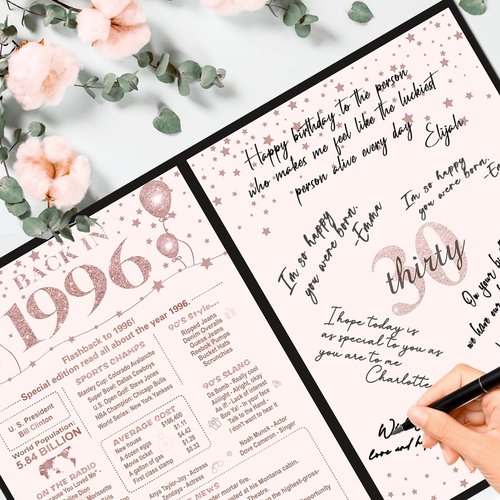 BACK IN
1996
Flashback to 1996!
Special edition read all about the year 1996...
U. S. President
Bill Clinton
World Population:
5.84 BILLION
ON THE RADIO
SPORTS CHAMPS
Stanley Cup: Colorado Avalanche
Super Bowl: Dallas Cowboys
U.S. Open Golf: Steve Jones
NBA Champion: Chicago Bulls
World Series: New York Yankees
AVERAGE COST
New house $166,400
A dozen eggs $1.11
Movie ticket $4.42
A gallon of gas $1.23
First class stamp $0.32
90'S Style...
Ripped Jeans
Denim Overalls
Guess Jeans
Reebok Pumps
Bucket Hats
Scrunchies
90'S SLANG
Da Bomb - Really cool
Aiiight - Alright, okay
As if! - Lack of interest
Bite Me - In your face
Talk to the Hand -
I don't want to hear it
Noah Munck - Actor
Dove Cameron - Singer
Anya Taylor-Joy -
NEWS
Happy birthday to the person
who makes me feel like the luckiest
person alive every day
Elijah
I'm so happy
you were born.
-Emma
I'm so happy
you were born.
30
thirty
I hope today is
as special to you as
you are to me
Charlotte
On your
we have